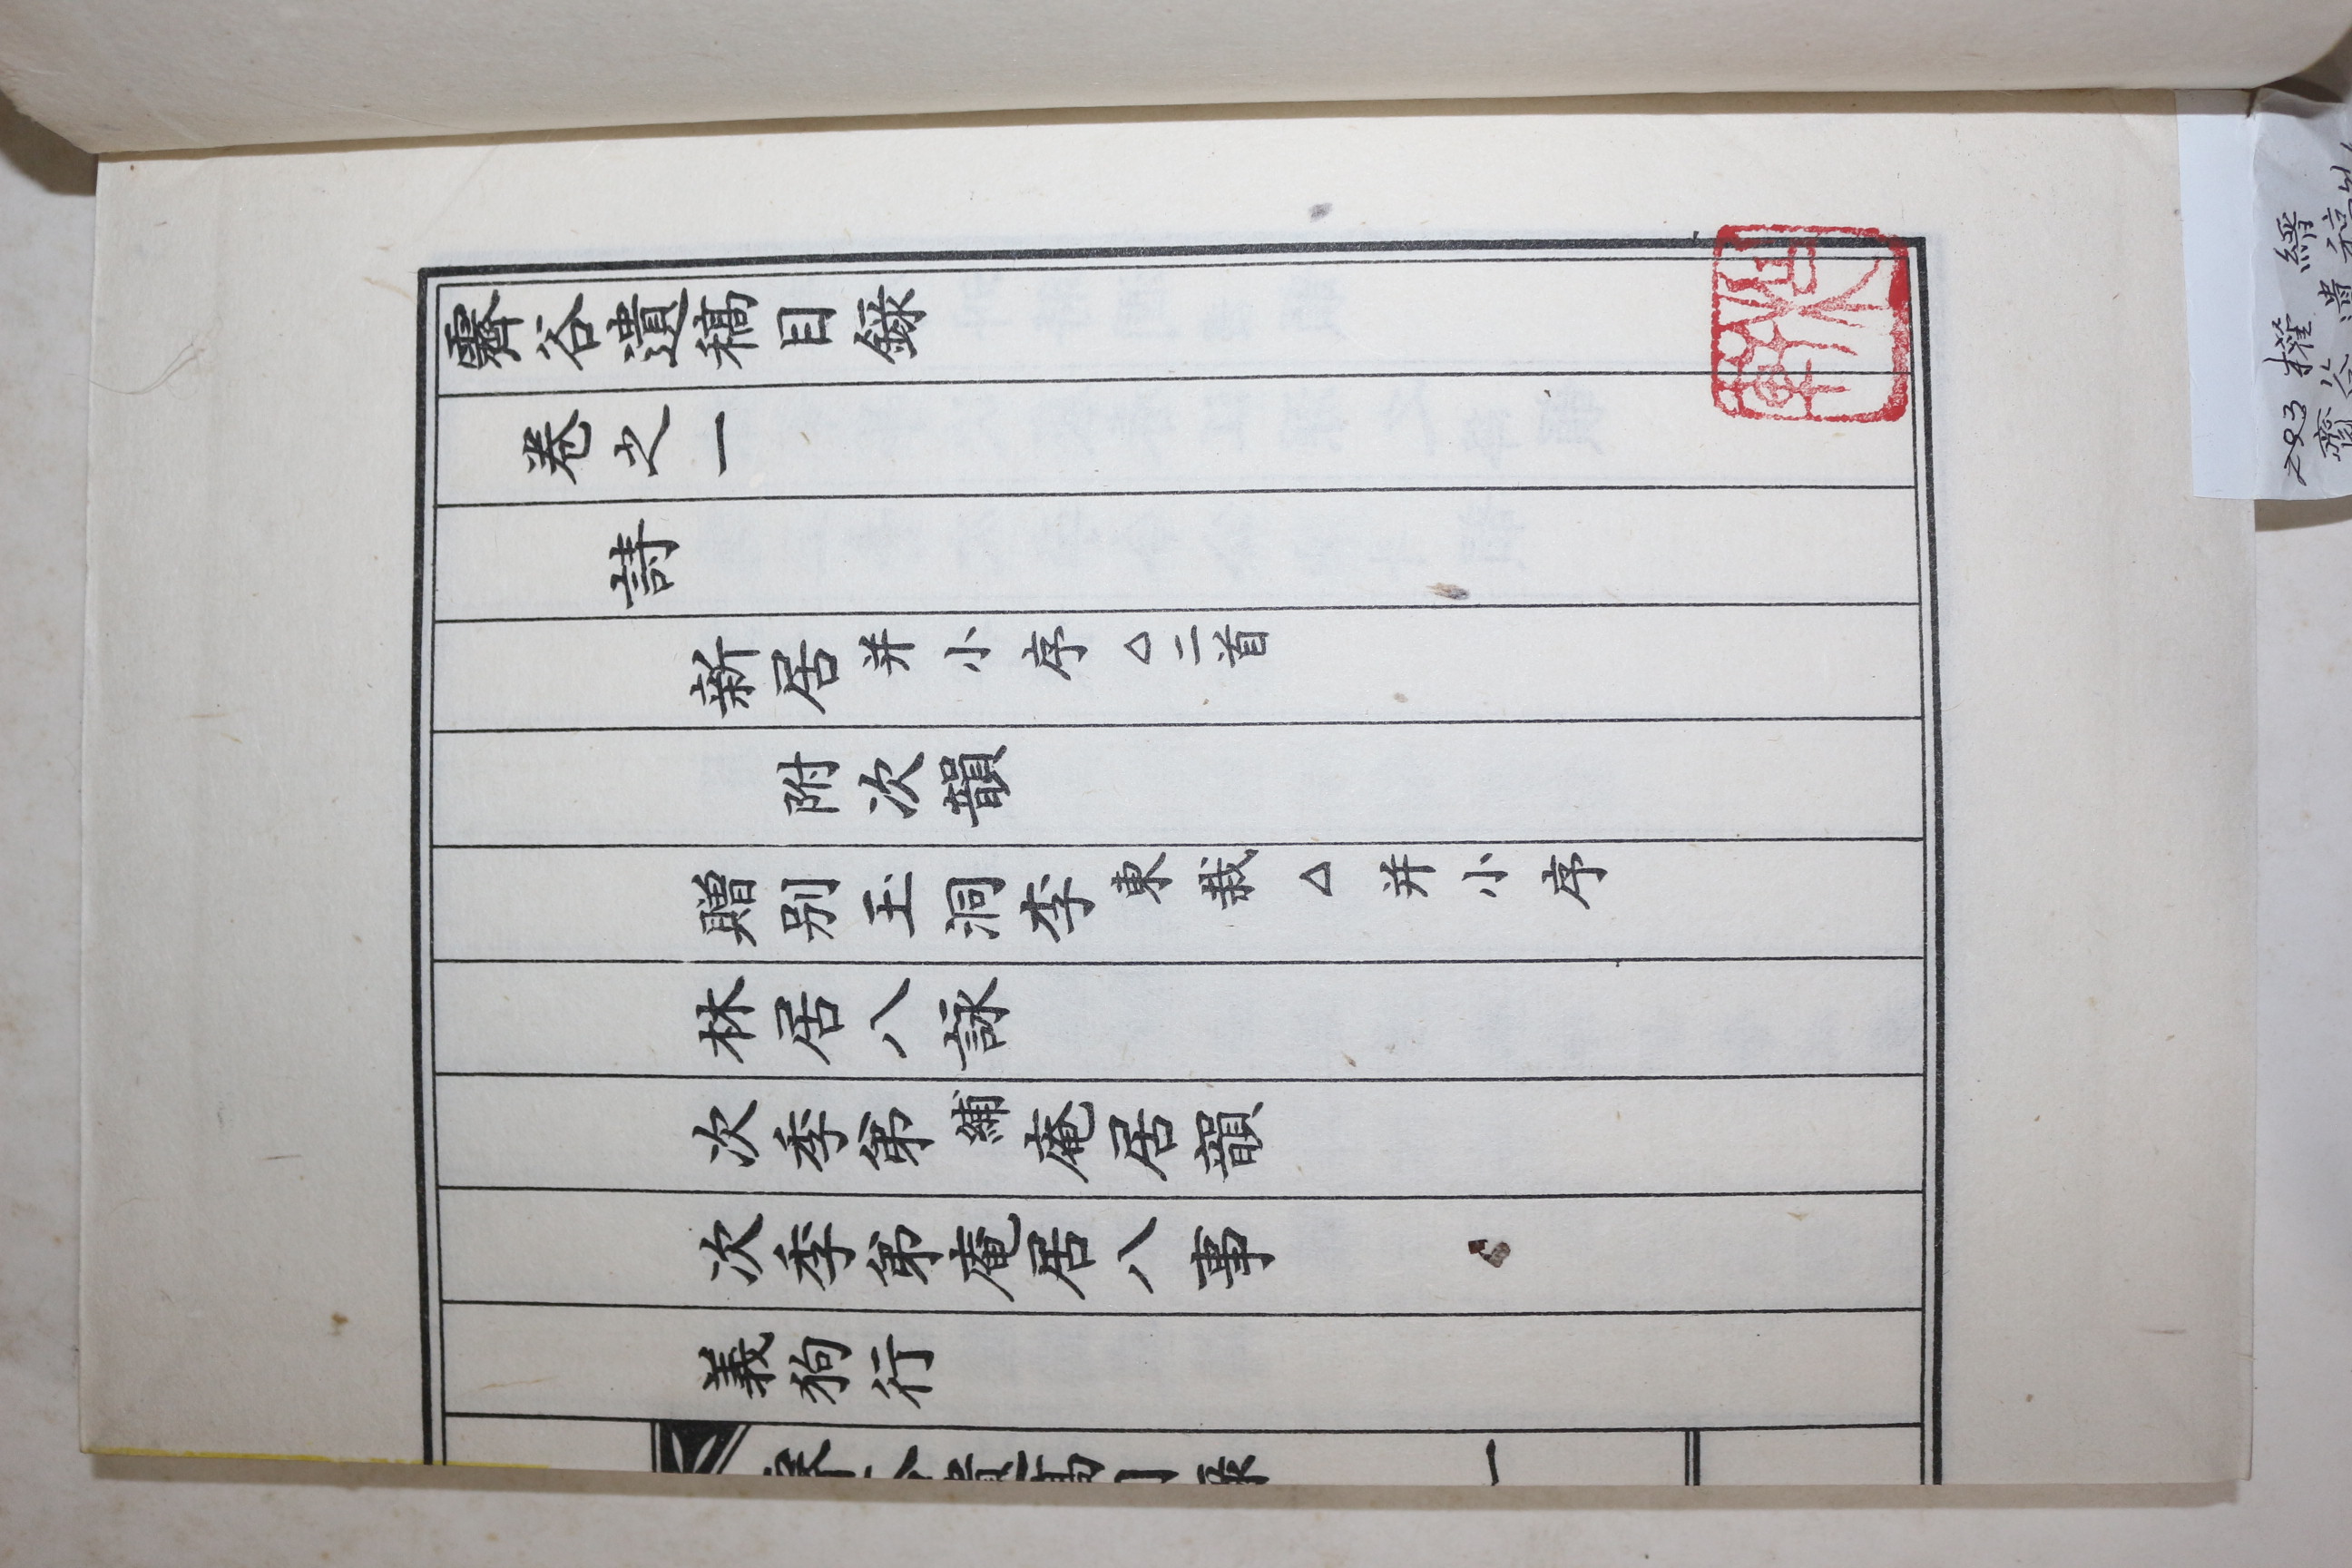 霽谷遺稿目錄
卷之一
詩
新居 并小序 △二首
附次韻
贈別玉洞李 東栽 △ 并小序
林居八詠
次季弟 䋠 庵居韻
次季弟庵居八事
義狗行
霽谷遺稿目錄 一
293 權 縉
齊谷遺稿